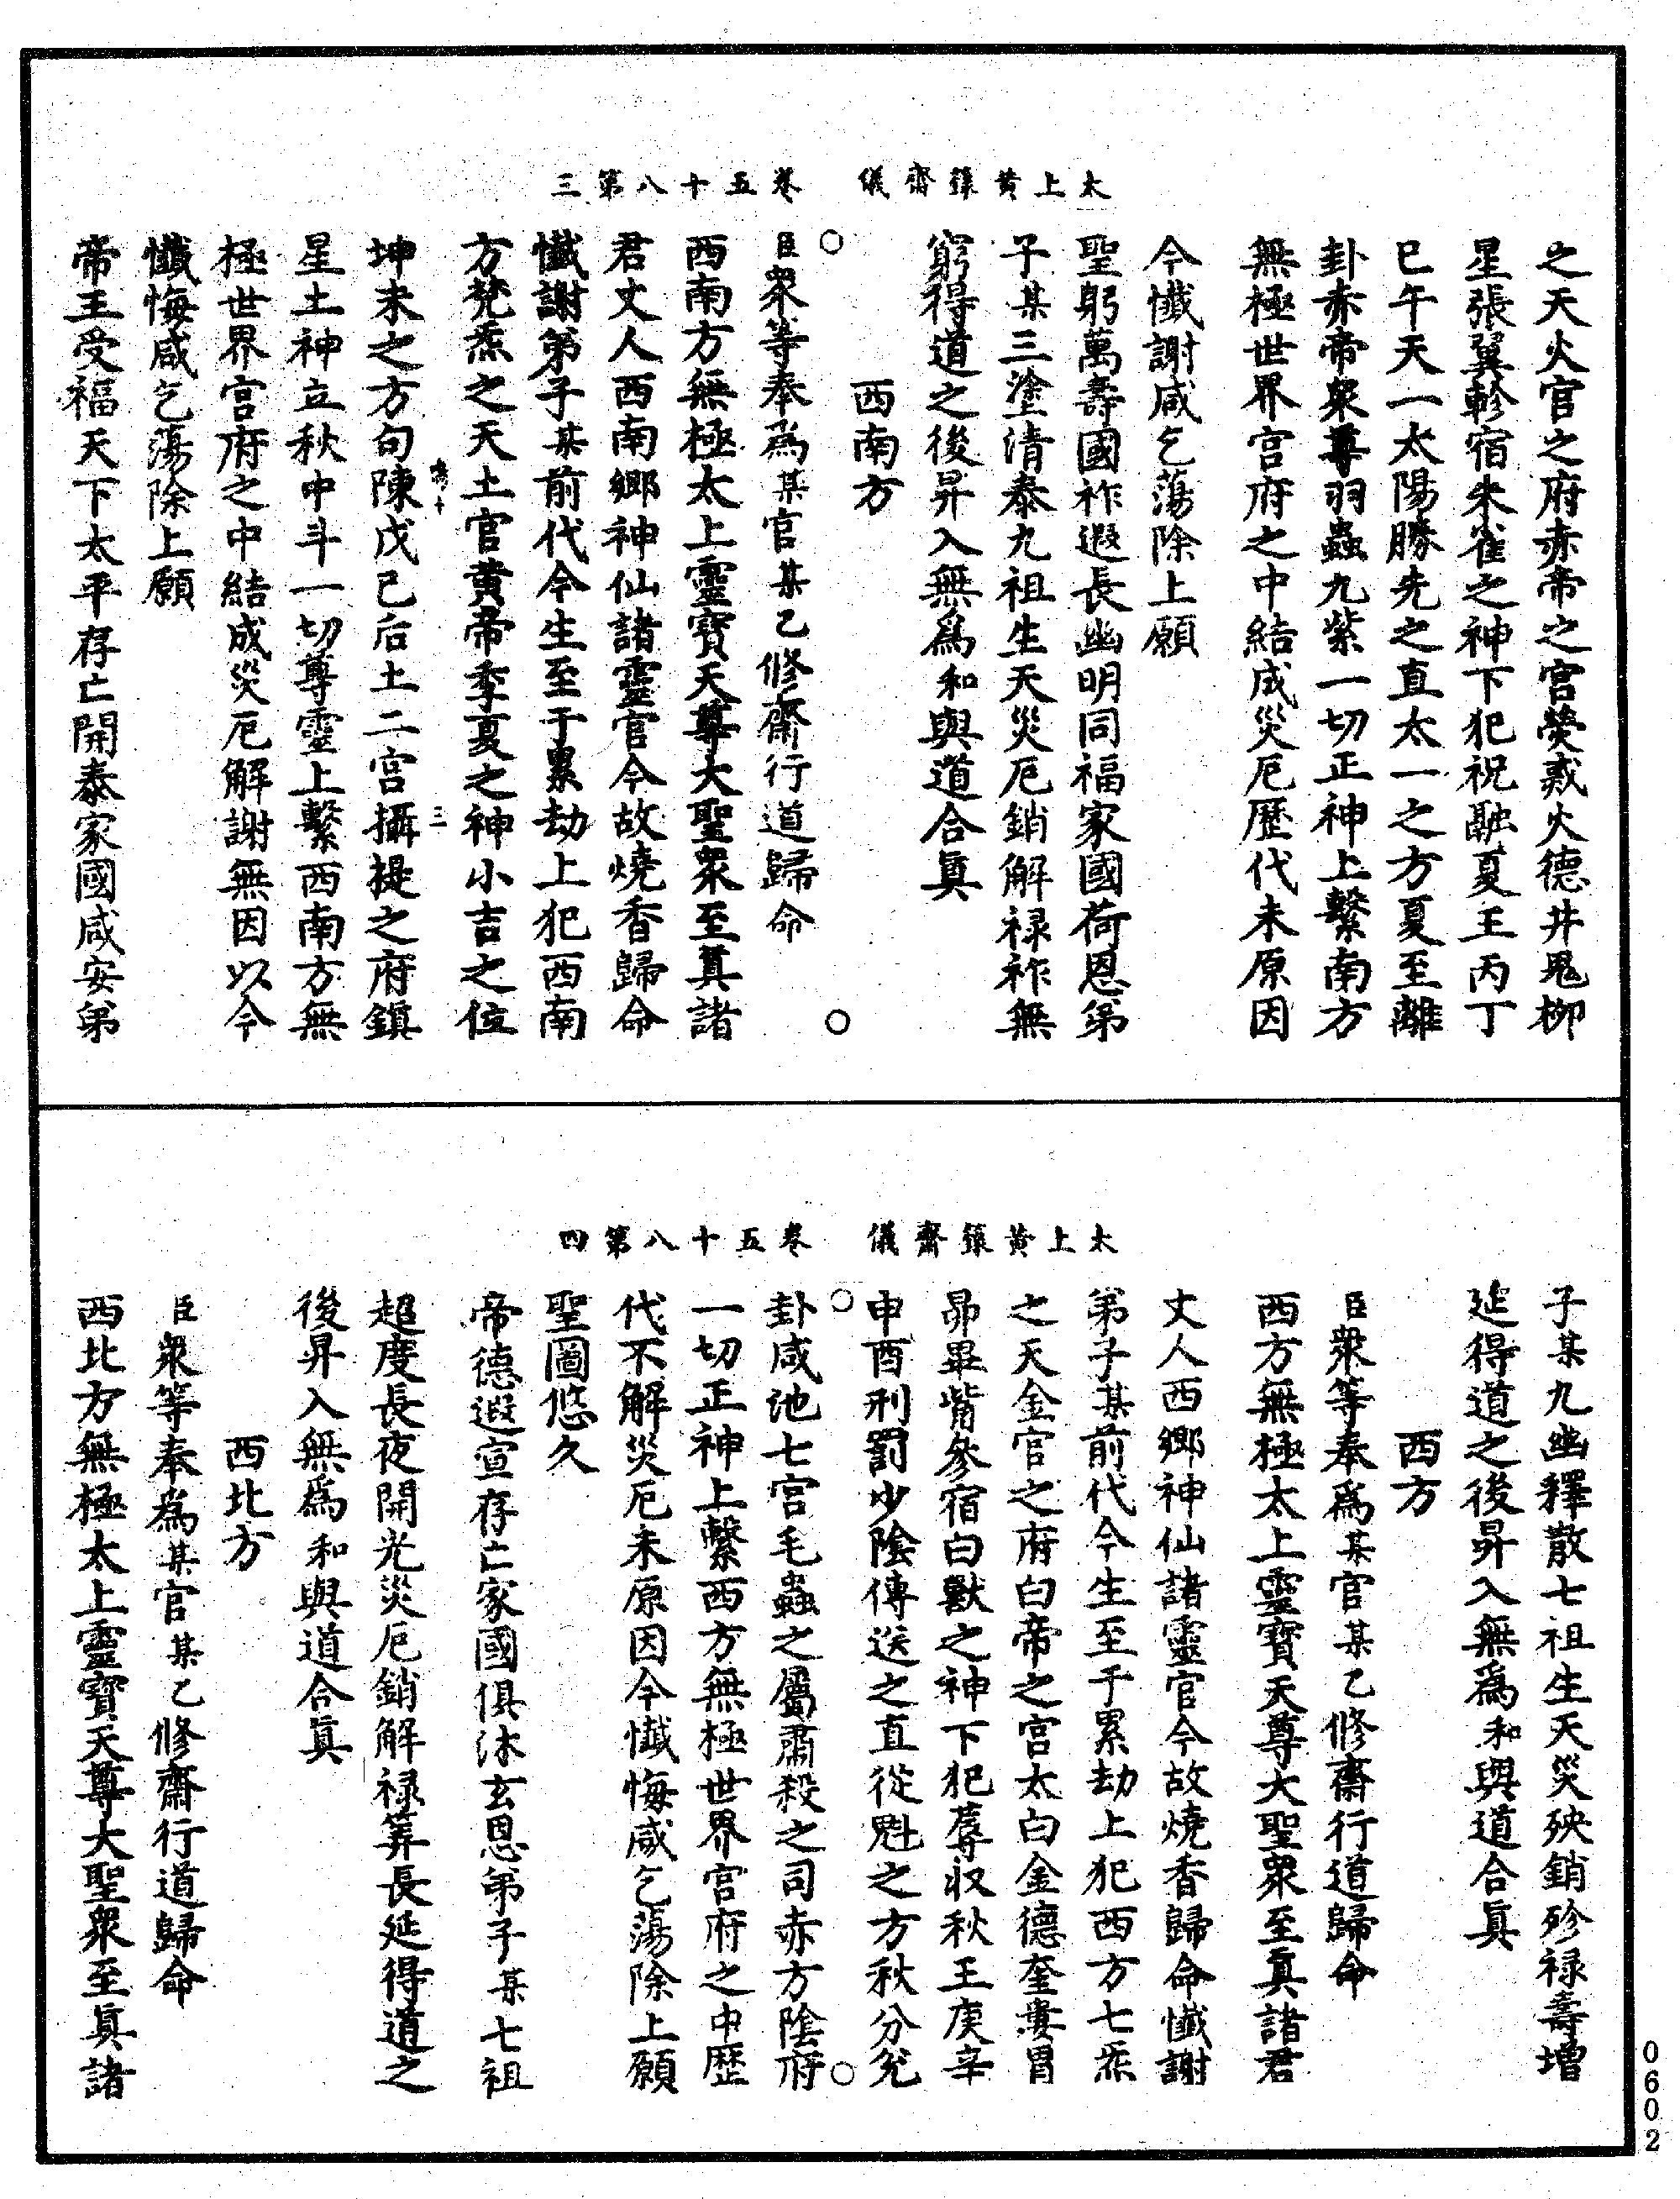 太上黃籙齋儀　卷五十八第三
之天火官之府赤帝之宮熒惑火德井鬼柳
星張翼軫宿朱雀之神下犯祝融夏王丙丁
巳午天一太陽勝先之直太一之方夏至離
卦赤帝衆尊羽蟲九紫一切正神上繫南方
無極世界宮府之中結成災厄歷代未原因
今懺謝咸乞蕩除上願
聖躬萬壽國祚遐長幽明同福家國荷恩弟
子某三塗清泰九祖生天災厄銷解祿祚無
窮得道之後昇入無爲和與道合眞
西南方
臣衆等奉爲某官某乙修齋行道歸命
西南方無極太上靈寶天尊大聖衆至眞諸
君丈人西南鄉神仙諸靈官今故燒香歸命
懺謝弟子某前代今生至于累劫上犯西南
方梵炁之天土官黃帝季夏之神小吉之位
坤未之方句陳戊己后土二宮攝提之府鎮
三
星土神立秋中斗一切尊靈上繫西南方無
極世界宮府之中結成災厄解謝無因以今
懺悔咸乞蕩除上願
帝王受福天下太平存亡開泰家國咸安弟
太上黃籙齋儀　卷五十八第四
子某九幽釋散七祖生天災殃銷殄祿壽增
延得道之後昇入無爲和與道合眞
西方
臣衆等奉爲某官某乙修齋行道歸命
西方無極太上靈寶天尊大聖衆至眞諸君
丈人西鄉神仙諸靈官今故燒香歸命懺謝
弟子某前代今生至于累劫上犯西方七炁
之天金官之府白帝之宮太白金德奎婁胃
昴畢觜參宿白獸之神下犯蓐收秋王庚辛
申酉刑罰少陰傳送之直從魁之方秋分兌
卦咸池七宮毛蟲之屬肅殺之司赤方陰府
一切正神上繫西方無極世界宮府之中歷
代不解災厄未原因今懺悔咸乞蕩除上願
聖圖悠久
帝德遐宣存亡家國俱沐玄恩弟子某七祖
超度長夜開光災厄銷解祿筭長延得道之
後昇入無爲和與道合眞
西北方
臣衆等奉爲某官某乙修齋行道歸命
西北方無極太上靈寶天尊大聖衆至眞諸
0602